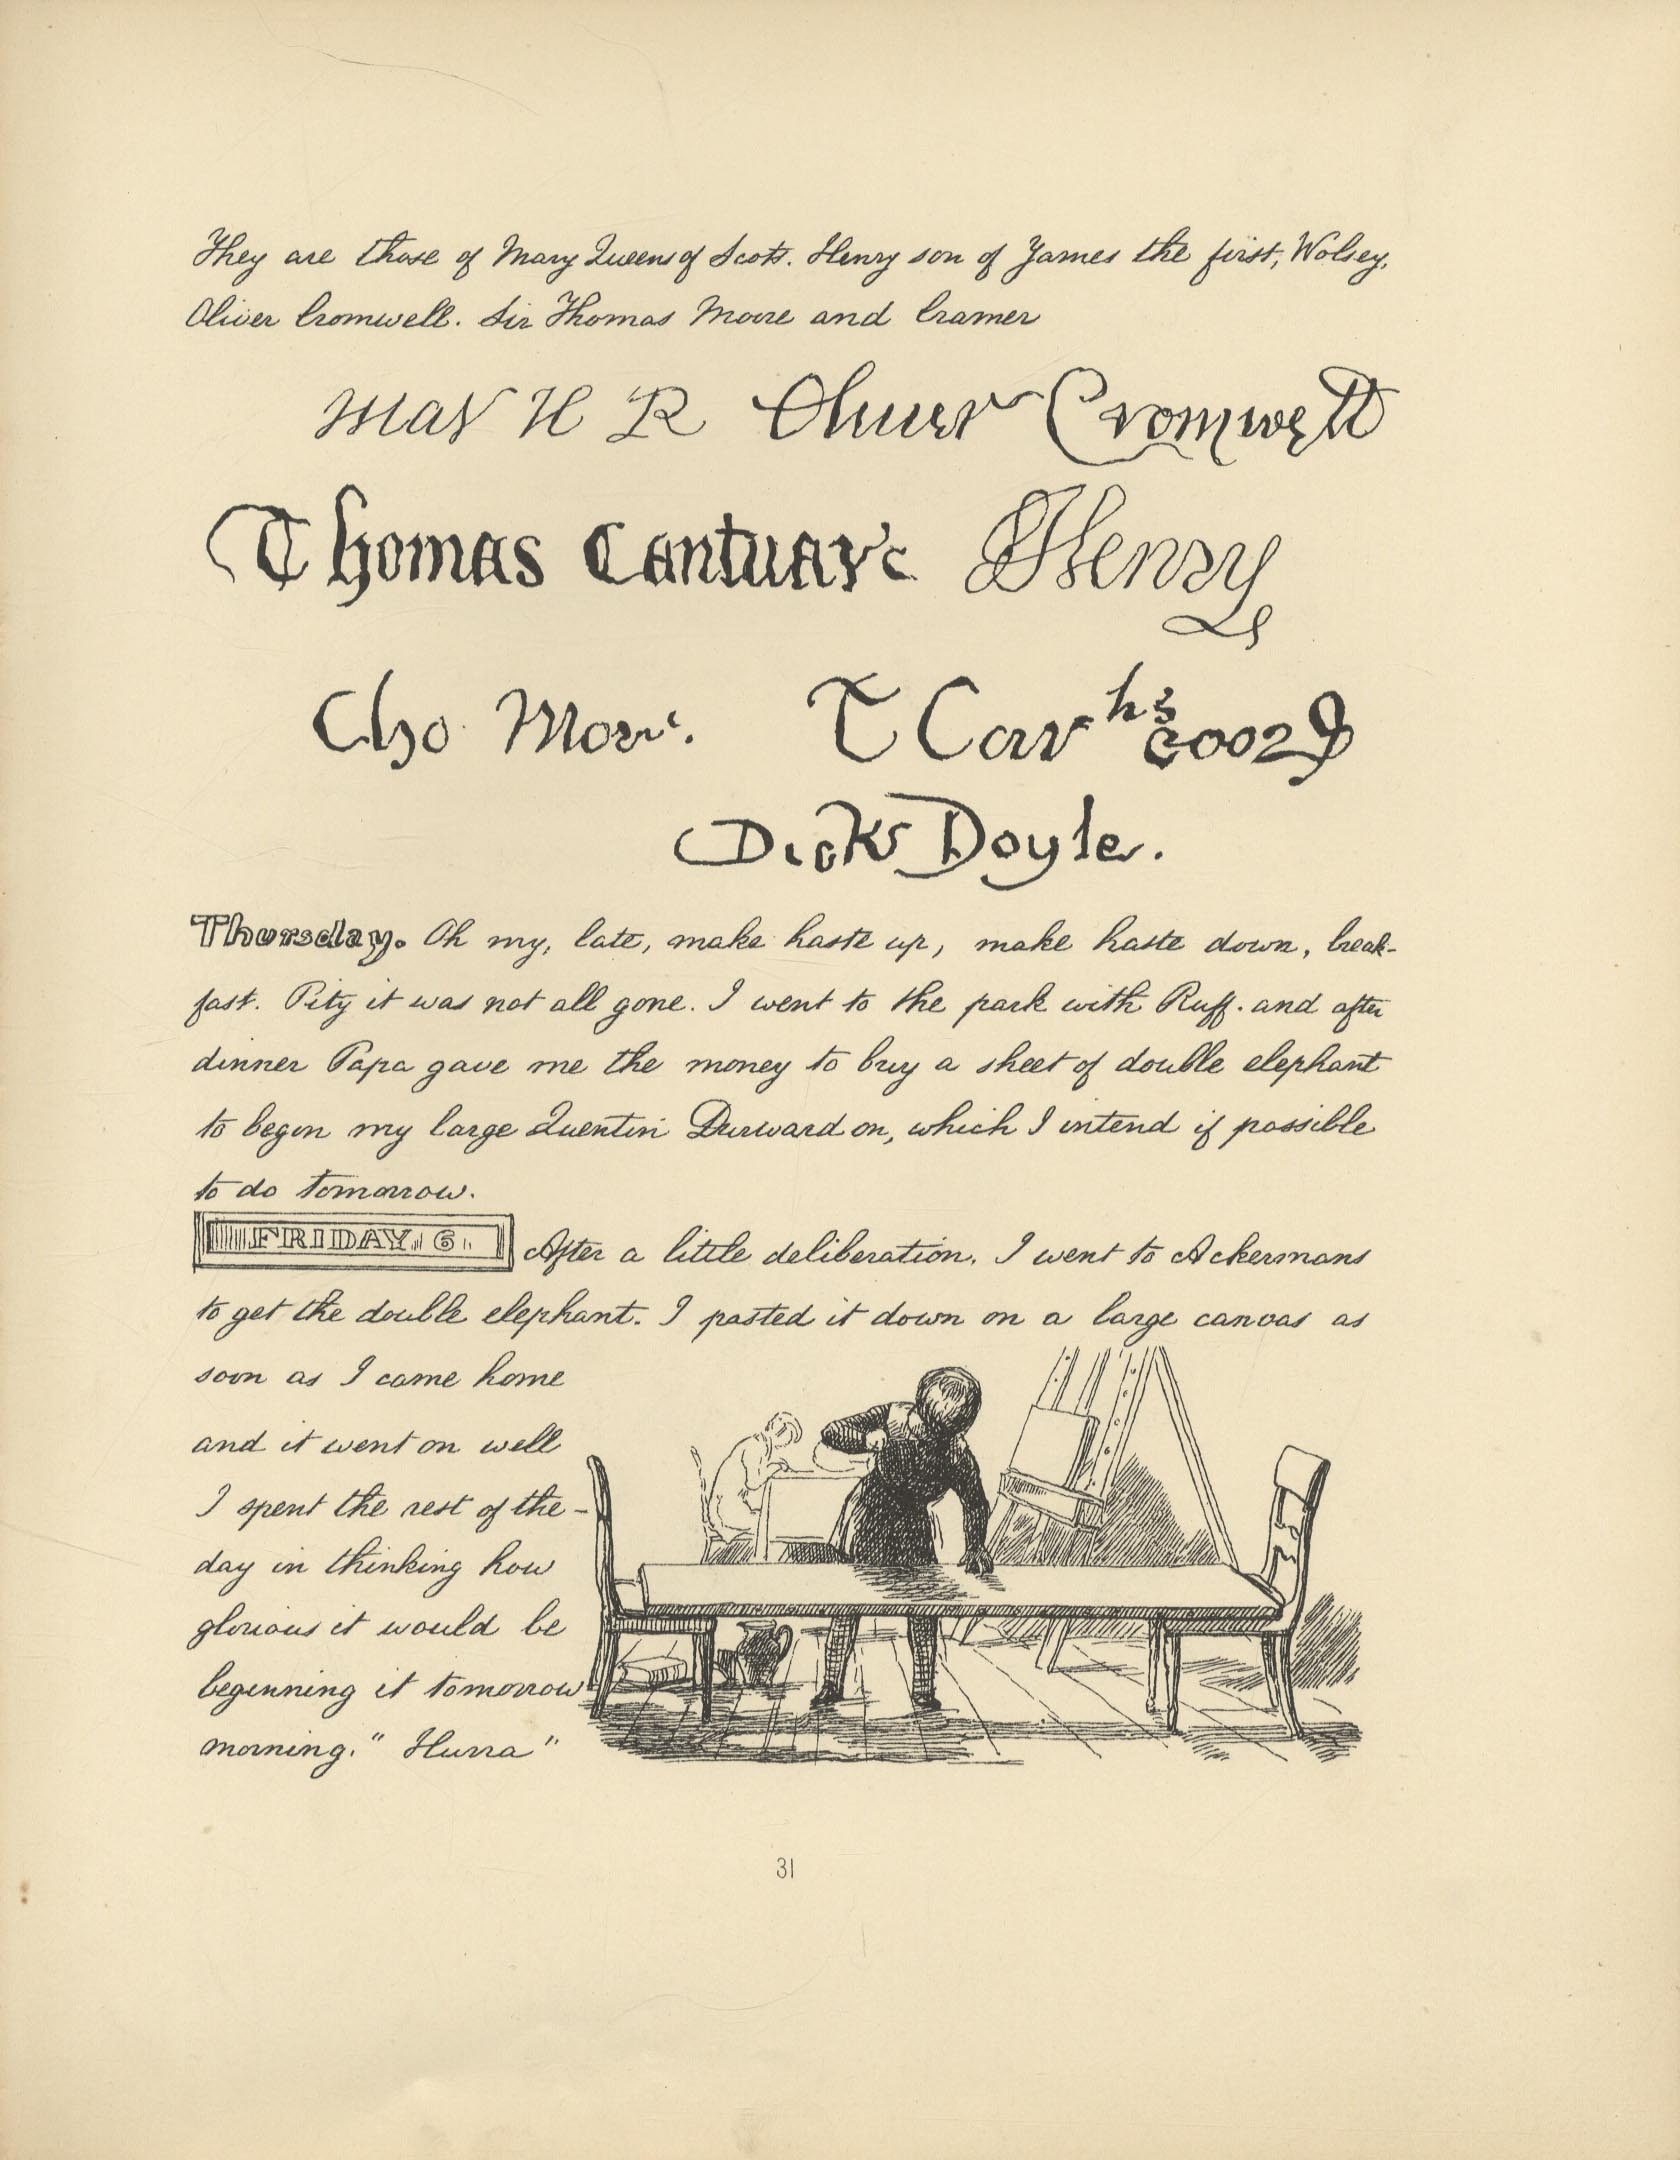 They are those of Mary Queens of Scots. Henry son of James the first, Wolsey,
Oliver Cromwell. Sir Thomas Moore and Cramer
Oliver Cromwell
Thomas Cantuar
Henry
Tho Mor
T Car
Dick Doyle.
Thursday. Oh my, late, make haste up, make haste down, break-
fast. Pity it was not all gone. I went to the park with Ruff. and after
dinner Papa gave me the money to buy a sheet of double elephant
to begin my large Quentin Durward on, which I intend if possible
to do tomorrow.
FRIDAY. 6. After a little deliberation, I went to Ackermans
to get the double elephant. I pasted it down on a large canvas as
soon as I came home
and it went on well
I spent the rest of the-
day in thinking how
glorious it would be
beginning it tomorrow
morning." Hurra"
31